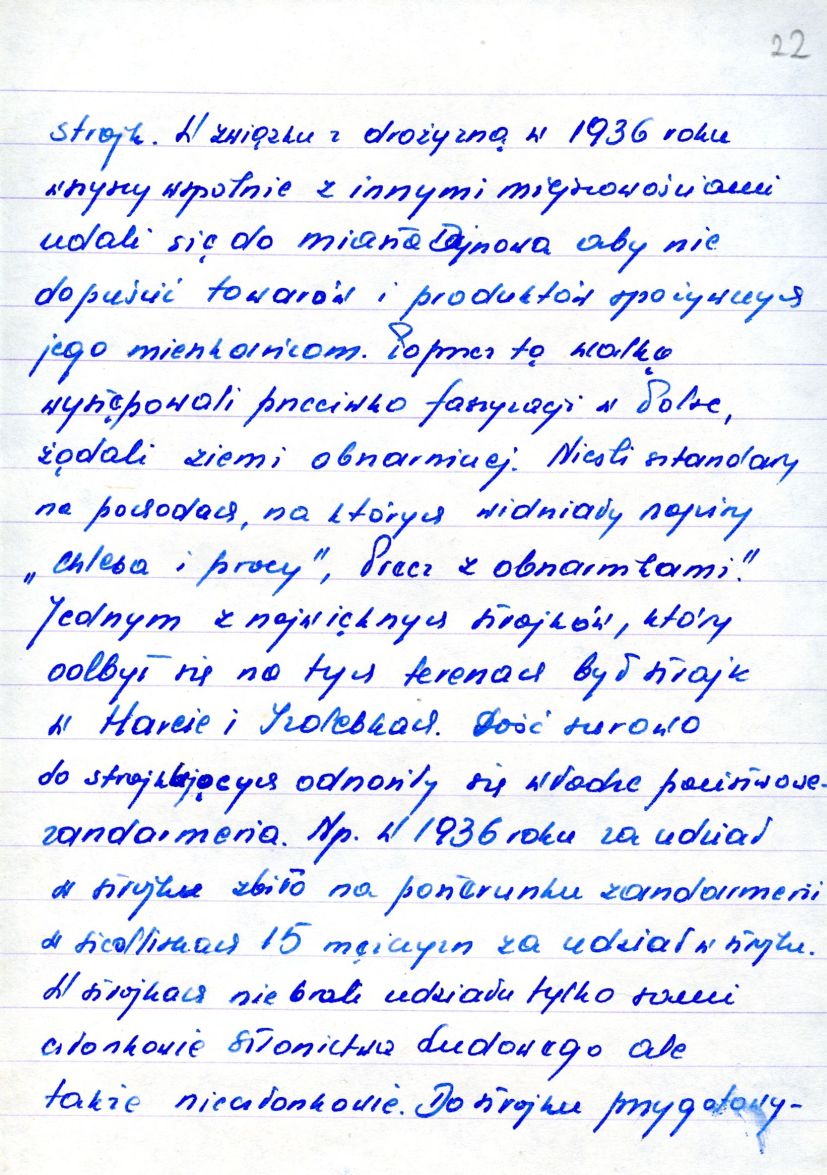 22
strajk. W związku z drożyzną w 1936 roku
wszyscy wspólnie z innymi miejscowościami
udali się do miasta Dynowa aby nie
dopuścić towarów i produktów spożywczych
jego mieszkańcom. Poprzez tą walkę
występowali przeciwko faszyzacji w Polsce,
żądali ziemi obszarniczej. Nieśli sztandary
na pochodach, na których widniały napisy
„chleba i pracy", Precz z obszarnikami".
Jednym z największych strajków, który
odbył się na tych terenach był strajk
w Harcie i Izdebkach. Dość surowo
do strajkujących odnosiły się władze państwowe-
żandarmeria. Np. W 1936 roku za udział
w strajku zbito na posterunku żandarmerii
w Siedliskach 15 mężczyzn za udział w strajku.
W strajkach nie brali udziału tylko sami
członkowie Stronictwa Ludowego ale
także nieczłonkowie. Do strajku przygotowy-